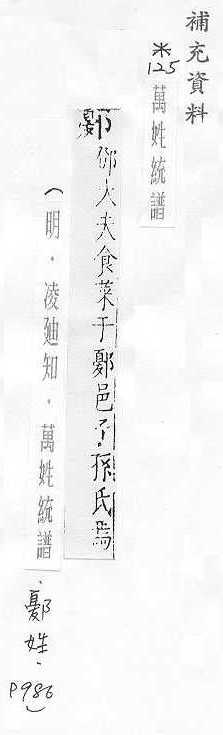 補充資料
※125
萬姓統譜
鄾
大夫食菜于鄾邑子孫氏焉
(明．凌廸知．萬姓統譜．鄾姓．P986)